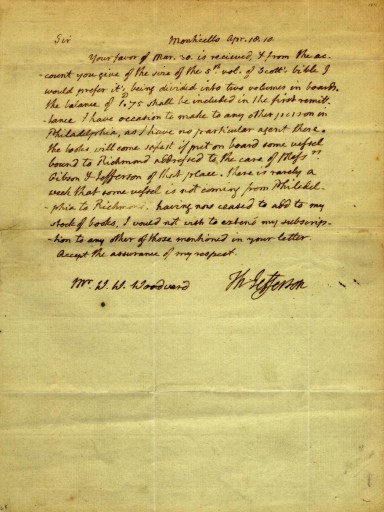 Sir Monticello Apr. 18. 10
Your favor of Mar. 30. is recieved, & from the ac-
-count you give of the size of the 5th vol. of Scott's bible I
would prefer it's being divided into two volumes in boards.
the balance of 1.D75 shall be included in the first remit-
-tance I have occasion to make to any other person in
Philadelphia, as I have no particular agent there.
the books will come safest if put on board some vessel
bound to Richmond addressed to the care of Messrs
Gibson & Jefferson of that place. there is rarely a
week that some vessel is not coming from Philadel-
-phia to Richmond. having now ceased to add to my
stock of books, I would not wish to extend my subscrip-
-tion to any other of those mentioned in your letter.
Accept the assurance of my respect.
Th: Jefferson
Mr. W. W. Woodward